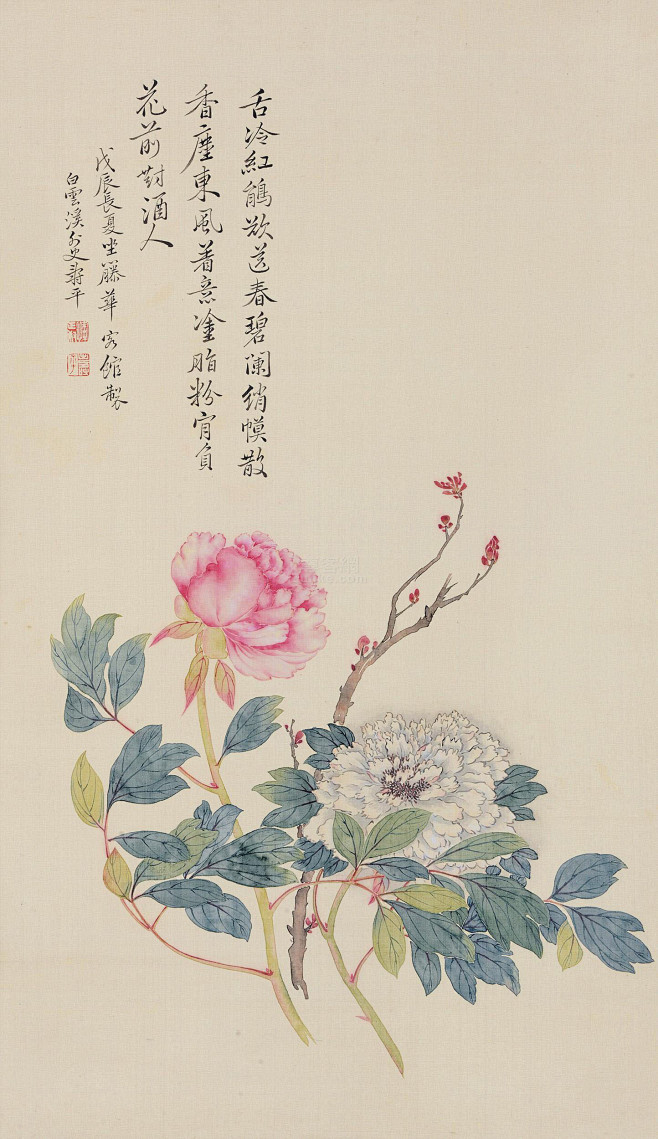 舌冷紅鵑欲送春碧闌綃幙散
香塵東風着意塗脂粉肎負
花前對酒人
戊辰長夏坐籐華客館製
白雲溪外史壽平